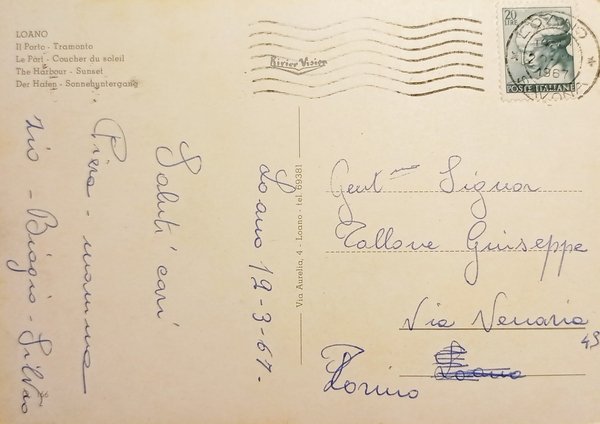 LOANO
Il Porto - Tramonto
Le Port - Coucher du soleil
The Harbour - Sunset
Der Hafen - Sonnenhuntergang
Rivier Visier
20
LIRE
POSTE ITALIANE
LOANO
1967
SAVONA
Loano 12-3-67-
Saluti cari
Piera - mamma
zio - Biagio - Silvao
Via Aurelia, 4 - Loano - tel. 69381
Gent.mo Signor
Tallone Giuseppe
Via Venaria 45
Loano
Torino
166